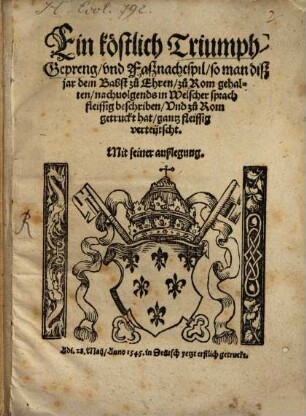 H. Eccl. 792.
2
Ein köstlich Triumph/
Gepreng/ vnd Faßnachtspil/ so man diß
jar dem Babst zů Ehren/ zů Rom gehal-
ten/ nachuolgends in Welscher sprach
fleissig beschriben/ Vnd zů Rom
getruckt hat/ gantz fleissig
verteütscht.
Mit seiner außlegung.
Adi. 28. Maij/ Anno 1545. in Teütsch yetzt erstlich getruckt.